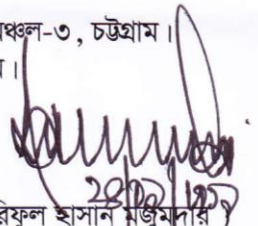 ঞ্চল-৩, চট্টগ্রাম।
।
রিফুল হাসান মজুমদার